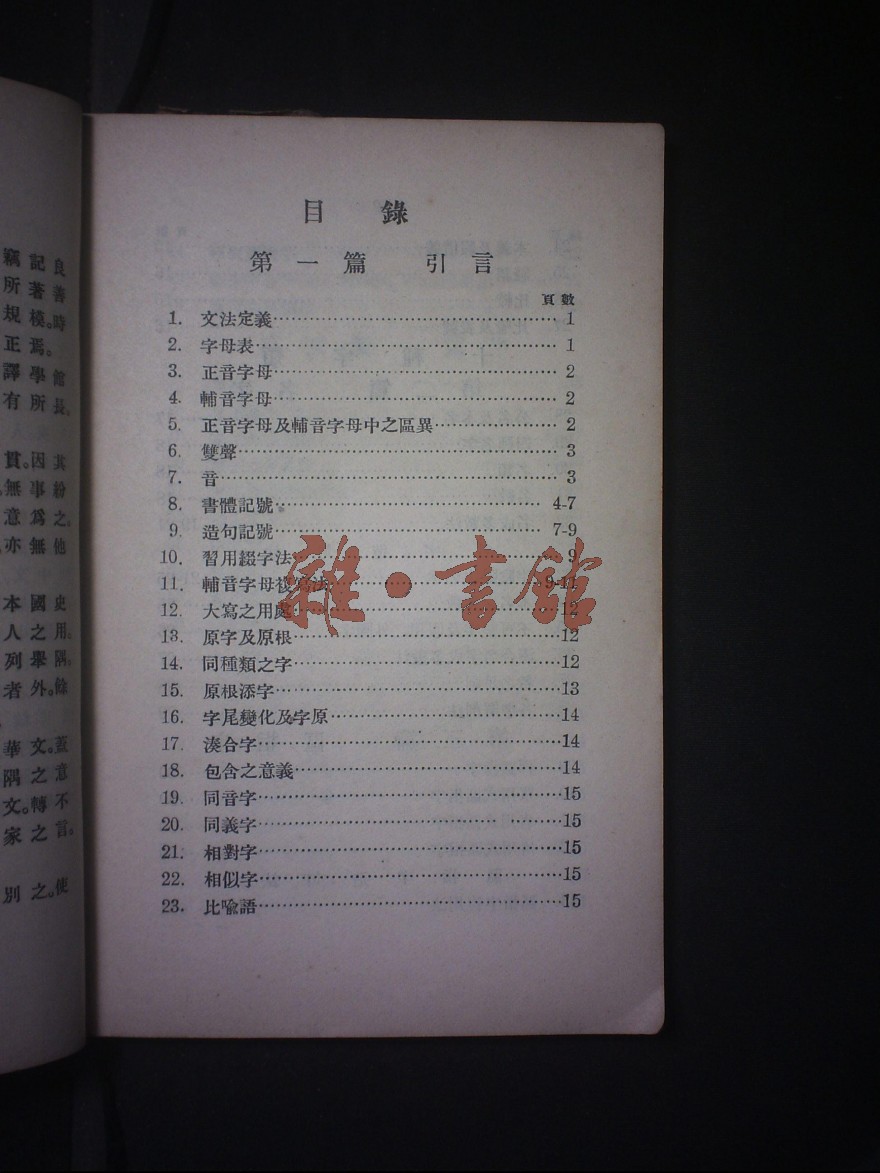 目錄
第一篇 引言
頁數
1. 文法定義 1
2. 字母表 1
3. 正音字母 2
4. 輔音字母 2
5. 正音字母及輔音字母中之區異 2
6. 雙聲 3
7. 音 3
8. 書體記號 4-7
9. 造句記號 7-9
10. 習用綴字法 9
11. 輔音字母複寫法 9-11
12. 大寫之用處 12
13. 原字及原根 12
14. 同種類之字 12
15. 原根添字 13
16. 字尾變化及字原 14
17. 湊合字 14
18. 包含之意義 14
19. 同音字 15
20. 同義字 15
21. 相對字 15
22. 相似字 15
23. 比喩語 15
雜·書館
良善時
館長
其紛之他
史用隅餘
蓋意不言
使
記著模。焉。學所
因事爲無
國之舉外。
文。之轉之
之。
竊所規正譯有
貫。無意亦
本人列者
華隅文。家
別